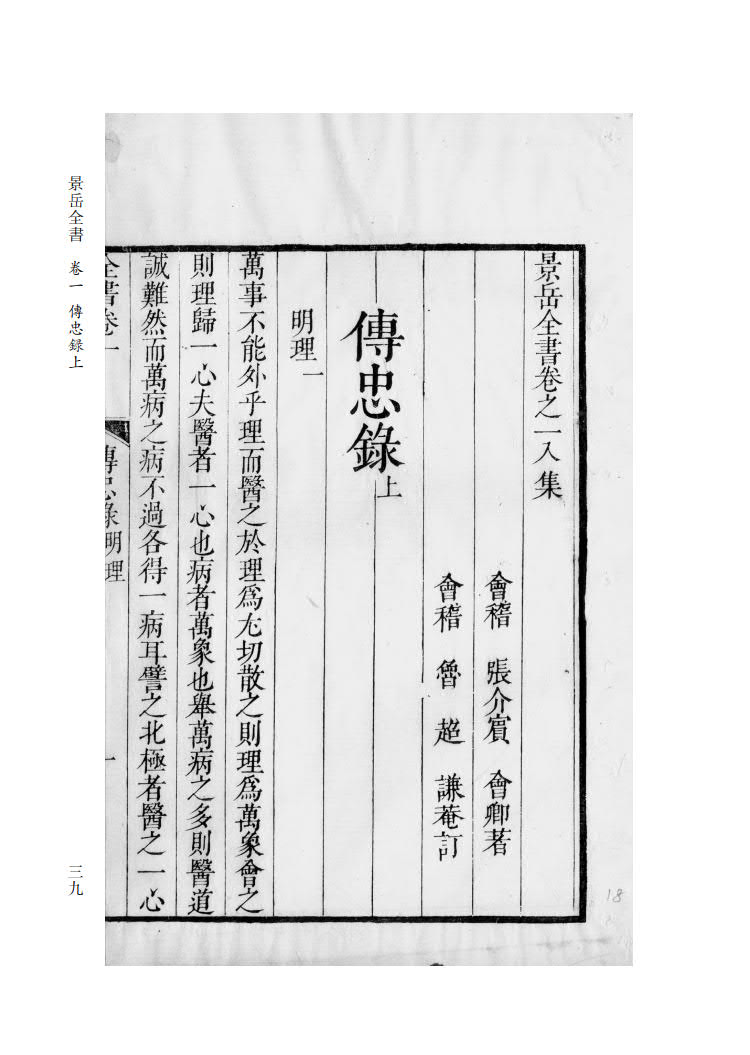 景岳全書卷之一入集
會稽 張介賓 會卿著
會稽 魯 超 謙菴訂
傳忠錄上
明理一
萬事不能外乎理而醫之於理爲尤切散之則理爲萬象會之
則理歸一心夫醫者一心也病者萬象也舉萬病之多則醫道
誠難然而萬病之病不過各得一病耳譬之北極者醫之一心
全書卷一 傳忠錄明理 一
景岳全書 卷一 傳忠録上
三九
18